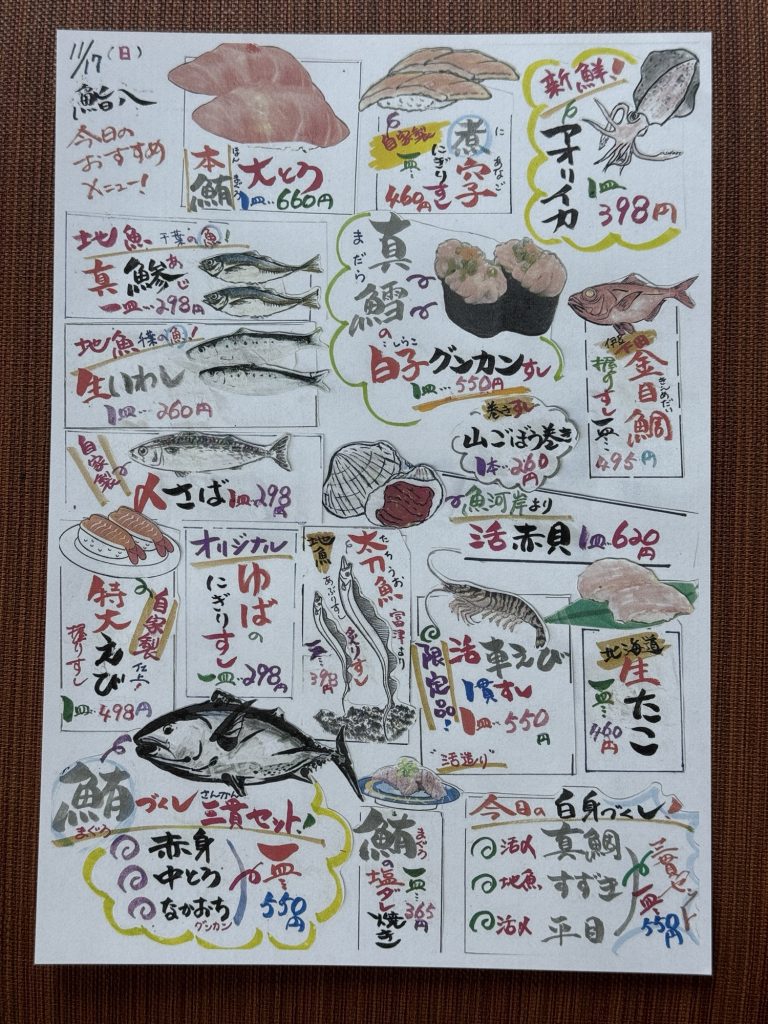 11/17(日)
鮨八
今日の
おすすめ
メニュー!
本鮪 大とろ
ほん まぐろ
1皿‥660円
自家製
煮穴子
に あなご
にぎりすし
一皿‥460円
新鮮!
アオリイカ
1皿 398円
地魚 千葉の魚!
真鯵
あじ
一皿‥298円
地魚 千葉の魚!
生いわし
1皿‥260円
真鱈の
まだら
白子グンカンすし
しらこ
1皿‥550円
金目鯛
きんめだい
握りすし
一皿‥495円
巻きすし
山ごぼう巻き
1本‥260円
自家製
〆さば 1皿‥298円
魚河岸より
活 赤貝 1皿‥620円
自家製 仕上!
特大えび
握りすし
1皿‥498円
オリジナル
ゆばの
にぎりすし
一皿‥298円
地魚
太刀魚 宮津より
たちうお
炙りすし
あぶりすし
一皿‥398円
限定品!
活車えび
一貫すし
1皿‥550円
"活造り"
北海道
生たこ
一皿‥460円
鮪づくし 三貫セット!
まぐろ さんかん
赤身
中とろ
なかおち
グンカン
一皿‥550円
鮪の塩ダレ焼き
まぐろ
一皿‥365円
今日の白身づくし!
活〆 真鯛
地魚 すずき
活〆 平目
三貫セット
一皿‥550円